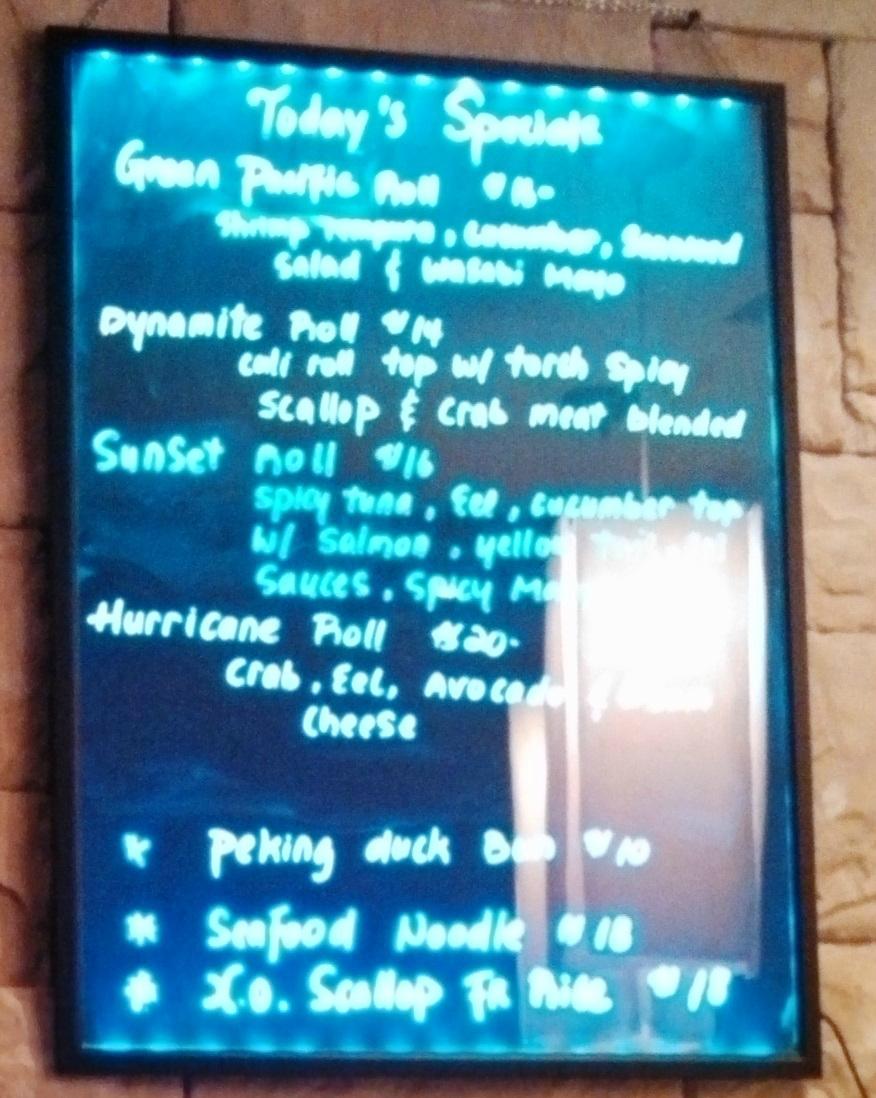 Today's Specials
Green Pacific Roll
Shrimp Tempura, Cucumber, Seaweed
Salad & Wasabi Mayo
Dynamite Roll $14
Cali roll top w/ torch Spicy
Scallop & Crab meat blended
Sunset Roll $16
Spicy tuna, Eel, cucumber top
w/ Salmon, yellow tail,
Sauces, Spicy
Hurricane Roll $20-
Crab, Eel, Avocado &
Cheese
* Peking duck Bun $10
* Seafood Noodle $18
* X.O. Scallop FR Rice $18